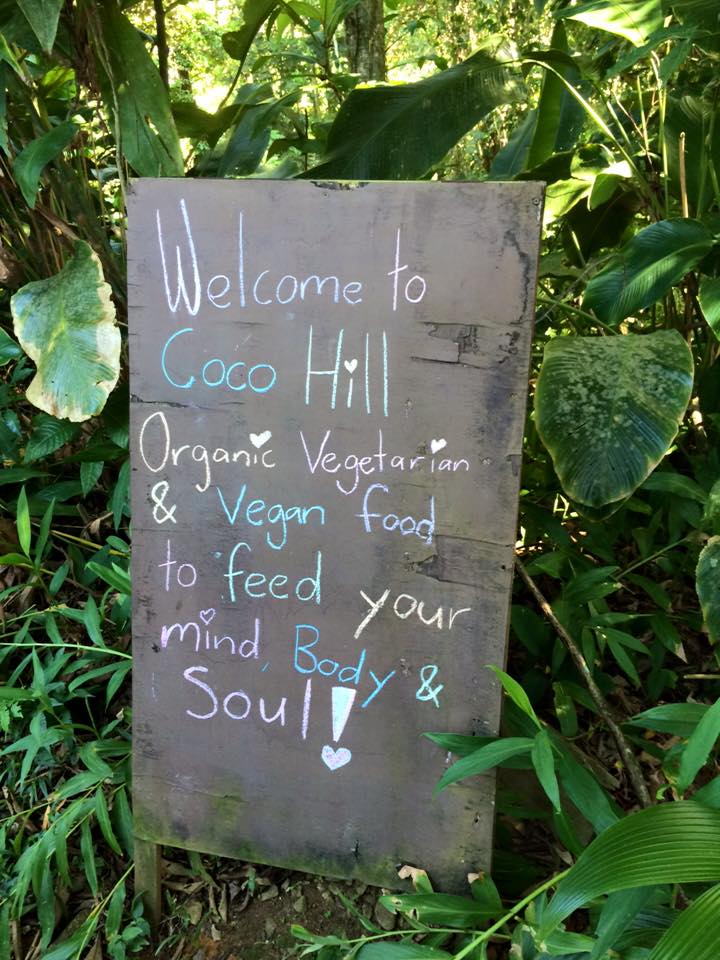 Welcome to
Coco Hill
Organic Vegetarian
& Vegan food
to feed your
mind, Body &
Soul!